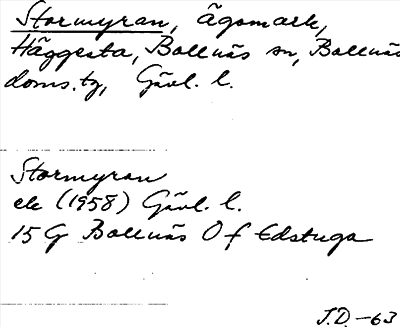 Stormyran, ägomark,
Häggesta, Bollnäs sn, Bollnäs
doms.tg, Gävl. l.
Stormyran
ek (1958) Gävl. l.
15 G Bollnäs O f Edstuga
J.D. -63